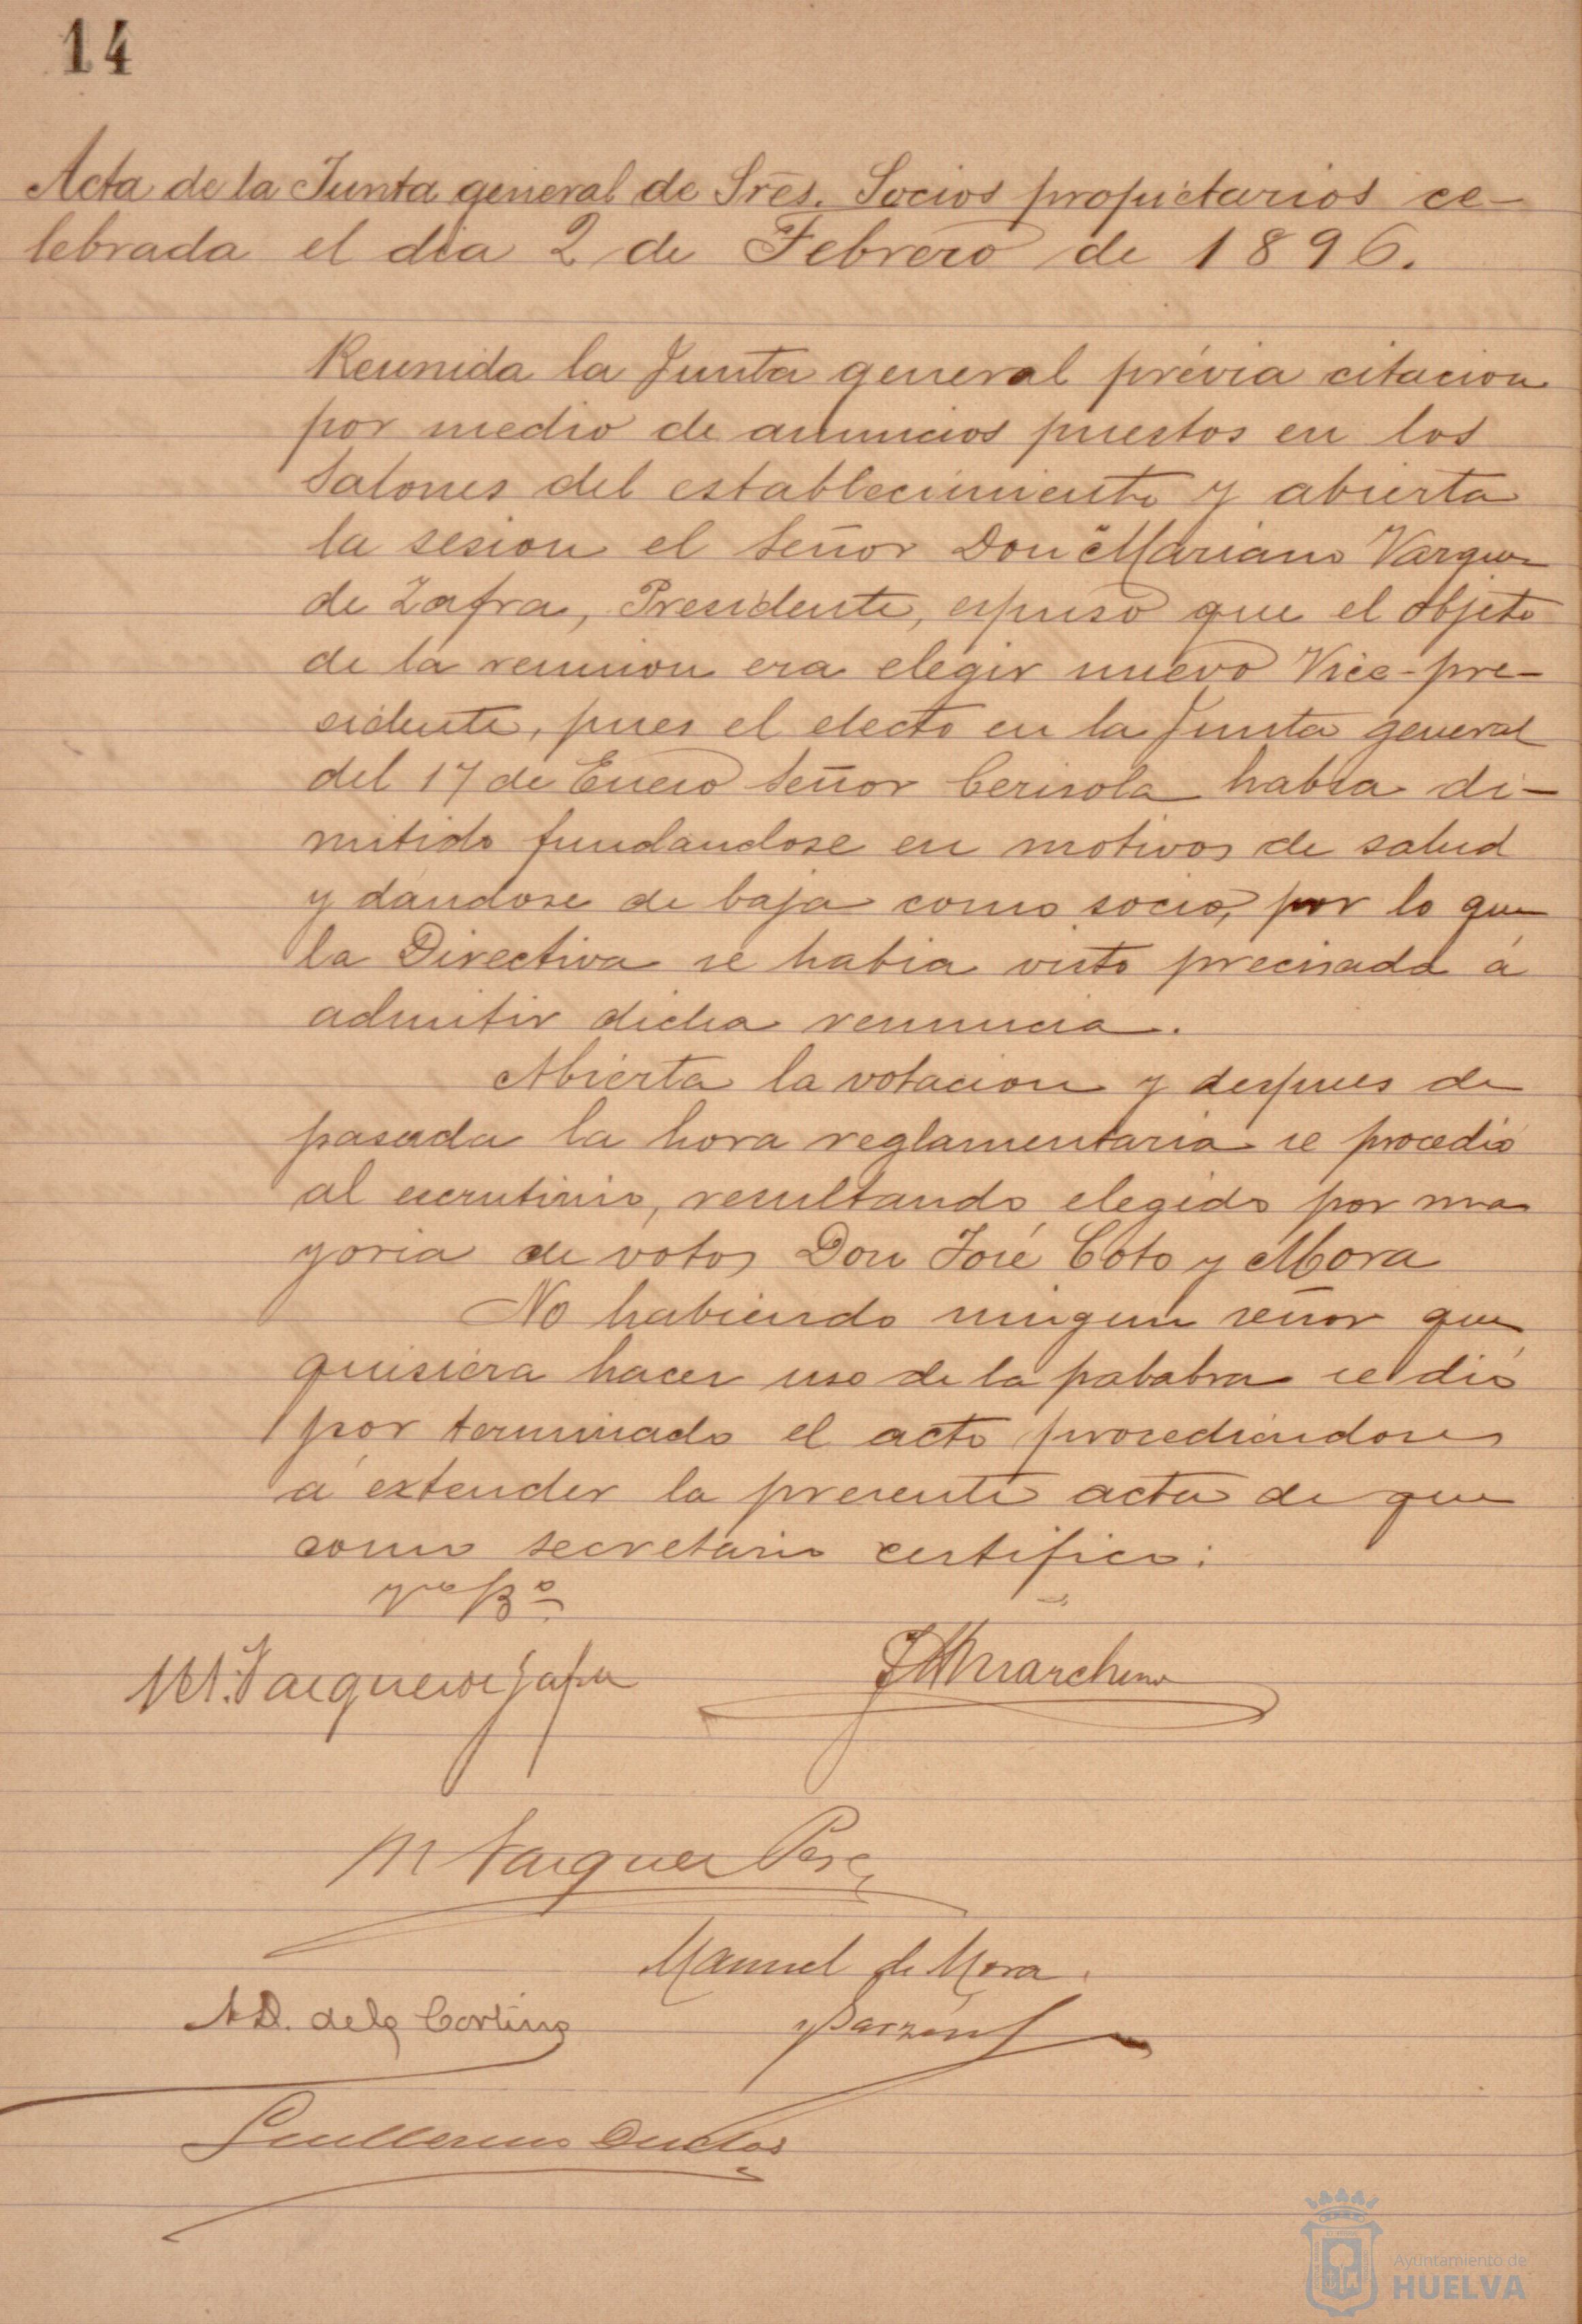 14
Acta de la Junta general de Sres. Socios propietarios ce-
lebrada el dia 2 de Febrero de 1896.
Reunida la Junta general prévia citacion
por medio de anuncios puestos en los
salones del establecimiento y abierta
la sesion el señor Don Mariano Vazquez
de Zafra, Presidente, espuso que el objeto
de la reunion era elegir nuevo Vice-pre-
sidente, pues el electo en la Junta general
del 17 de Enero señor Cerisola habia di-
mitido fundandose en motivos de salud
y dándose de baja como socio, por lo que
la Directiva se habia visto precisada á
admitir dicha renuncia.
Abierta la votacion y despues de
pasada la hora reglamentaria se procedió
al escrutinio, resultando elegido por ma
yoria de votos Don José Coto y Mora
No habiendo ningun señor que
quisiera hacer uso de la palabra se dió
por terminado el acto procediendose
á extender la presente acta de que
como secretario certifico:
Vº Bº
M. Vazquez de Zafra
Marchena
M Vazquez Perez
Manuel de Mora
y Garzón
A D. de la Cortina
Guillermo Duclos
Ayuntamiento de
HUELVA